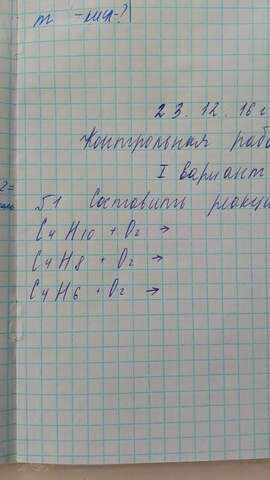 m -
23.12.16 г
Контрольная рабо
I вариант
2=
Б1 Составить реакци
C4H10 + O2 →
C4H8 + O2 →
C4H6 + O2 →